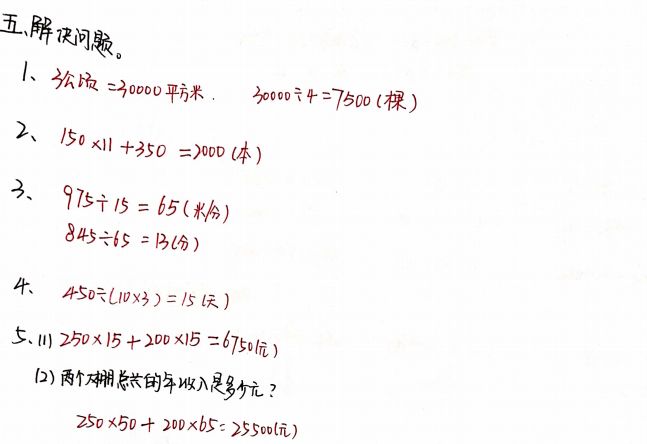 五、解决问题。
1、 3公顷=30000平方米. 30000÷4=7500(棵)
2、 150×11+350=2000(本)
3、 975÷15=65(米/分)
845÷65=13(分)
4、 450÷(10×3)=15(天)
5、(1) 250×15+200×15=6750(元)
(2) 两个大棚总共的年收入是多少元?
250×50+200×65=25500(元)